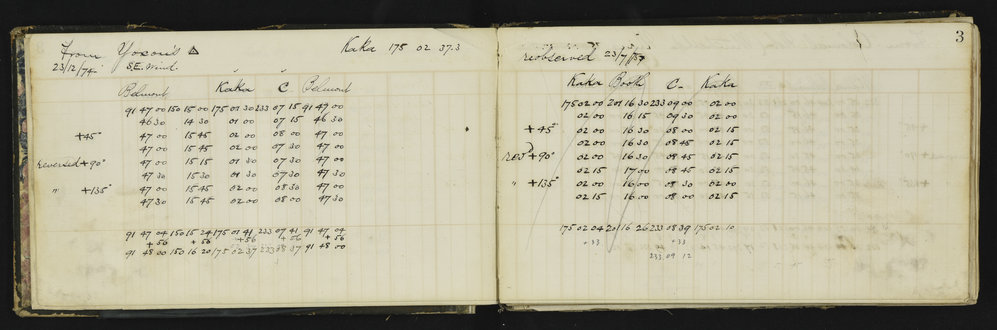 From Yoxon's △ Kaka 175 02 37.3
23/12/74. S.E. Wind.
Belmont Kaka C Belmont
91 47 00 150 15 00 175 01 30 233 07 15 91 47 00
46 30 14 30 01 00 07 15 46 30
+45° 47 00 15 45 02 00 08 00 47 00
47 00 15 45 02 00 07 30 47 00
reversed +90° 47 00 15 15 01 30 07 30 47 00
47 30 15 30 01 30 07 30 47 30
" +135° 47 00 15 45 02 00 08 30 47 00
47 30 15 45 02 00 08 00 47 30
91 47 04 150 15 24 175 01 41 233 07 41 91 47 04
+56 +56 +56 +56 +56
91 48 00 150 16 20 175 02 37 233 08 37 91 48 00
3
reobserved 23/7/
Kaka Booth C Kaka
175 02 00 201 16 30 233 09 00 02 00
02 00 16 15 09 30 02 00
+45° 02 00 16 30 08 00 02 15
02 00 16 30 08 45 02 15
rev'd +90° 02 00 16 30 08 45 02 15
02 15 17 00 08 45 02 15
" +135° 02 00 16 00 08 30 02 00
02 15 16 00 08 00 02 15
175 02 04 201 16 26 233 08 39 175 02 10
+33 +33
233 09 12